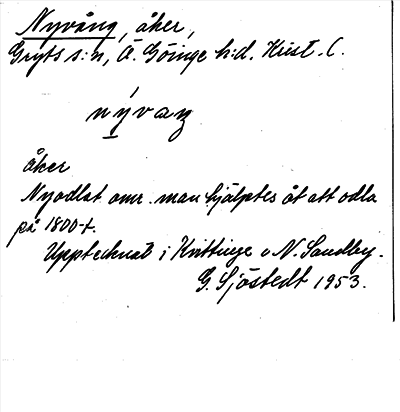 Nyvång, åker,
Gryts s:n, Ä. Göinge h:d. Krist. C.
nývaŋ
åker
Nyodlat omr. man hjälptes åt att odla
på 1800-t.
Upptecknat i Knittinge o N. Sandby.
G. Sjöstedt 1953.